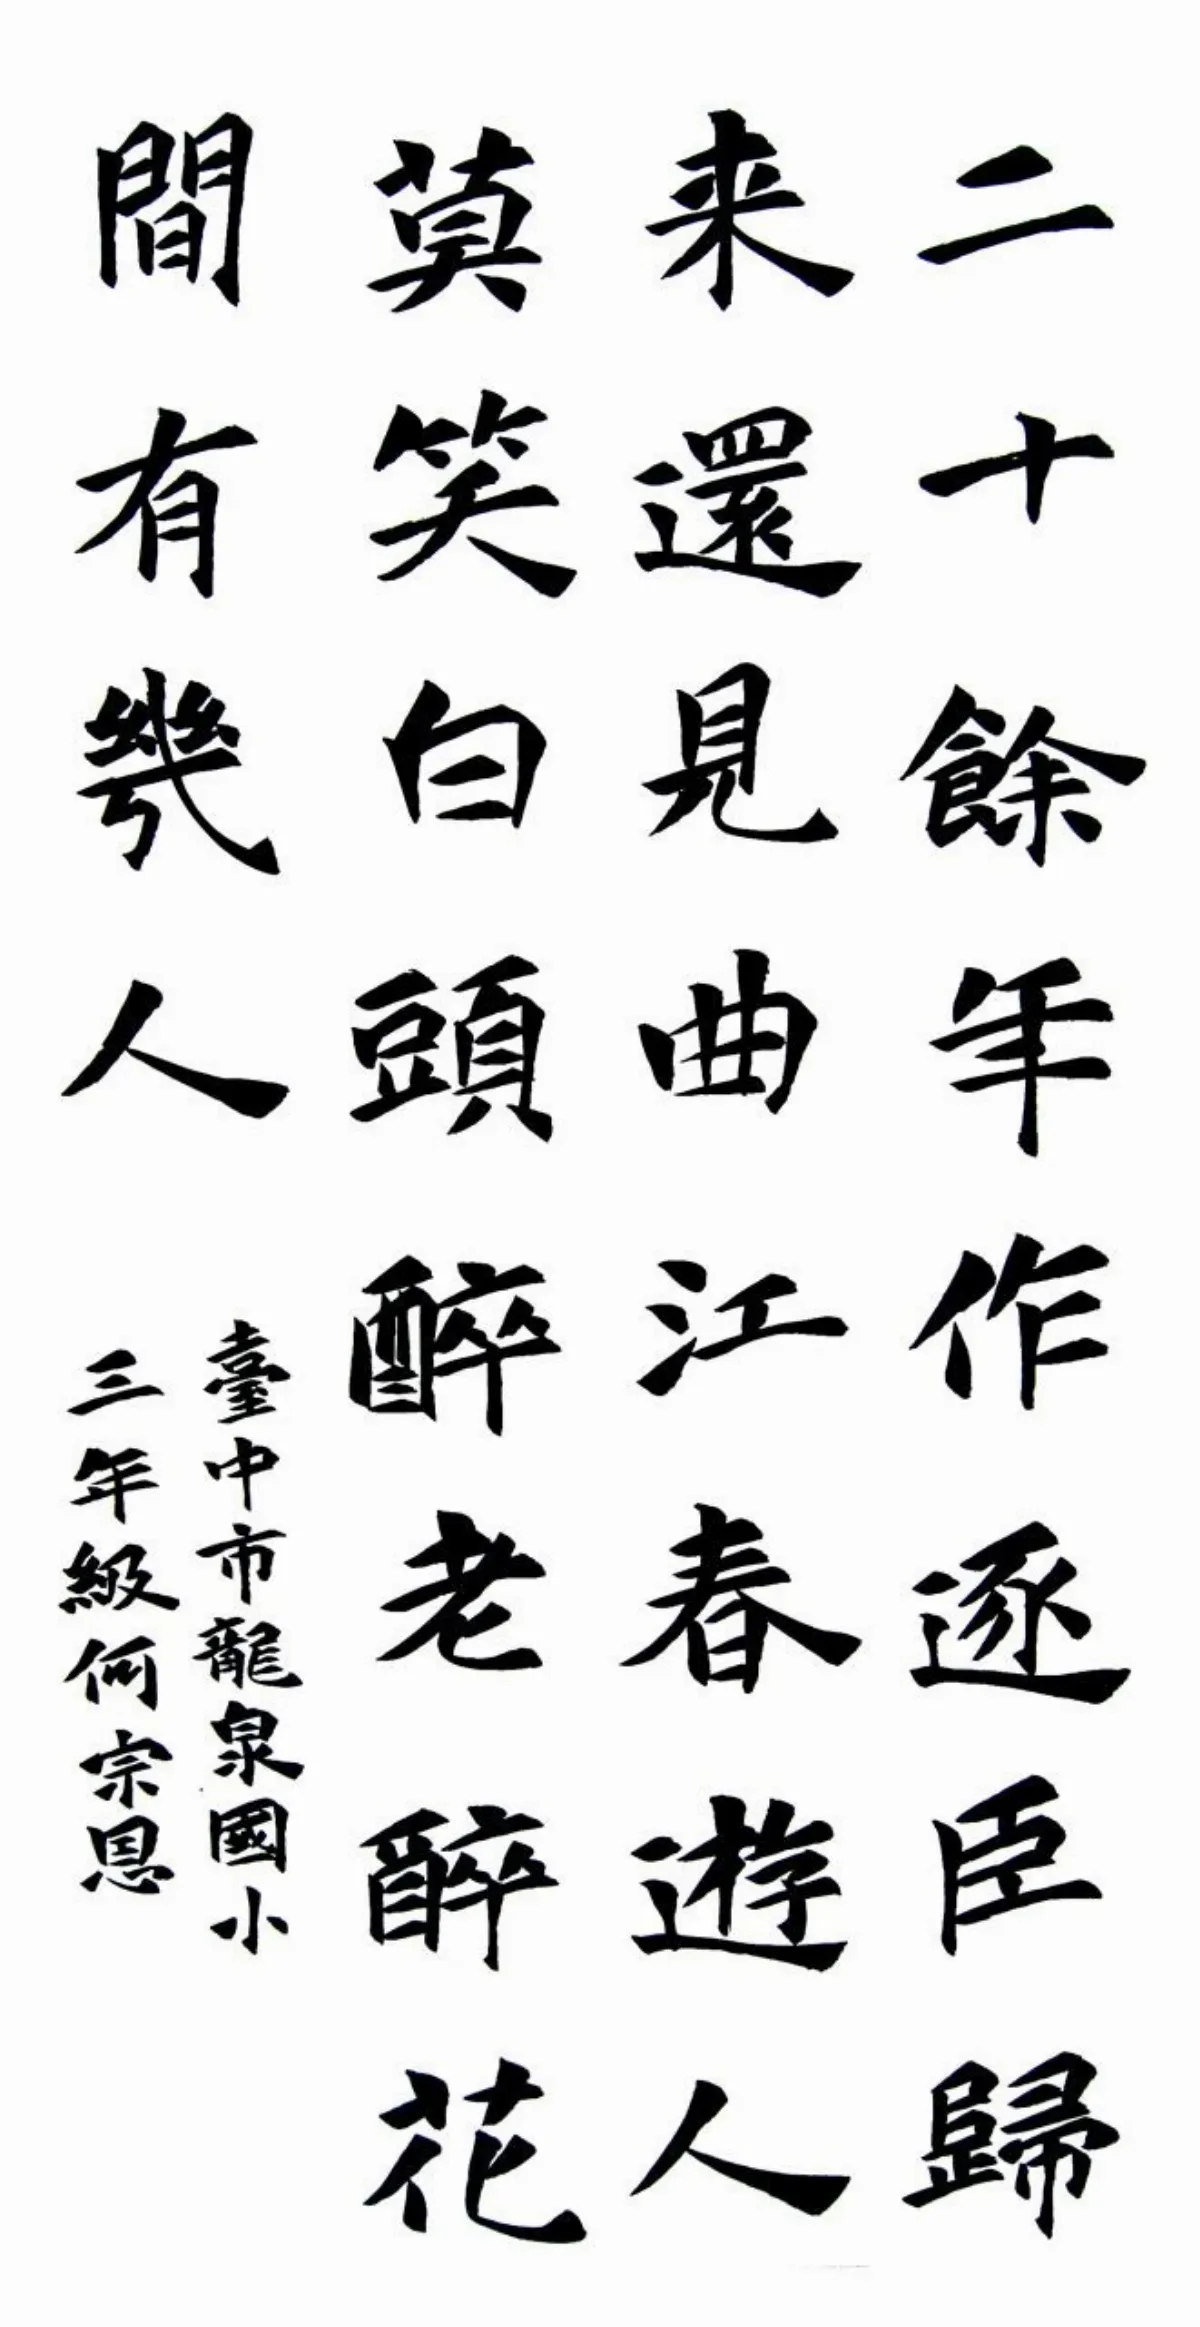 二十餘年作逐臣歸
来還見曲江春遊人
莫笑白頭醉老醉花
間有幾人
臺中市龍泉國小
三年級何宗恩